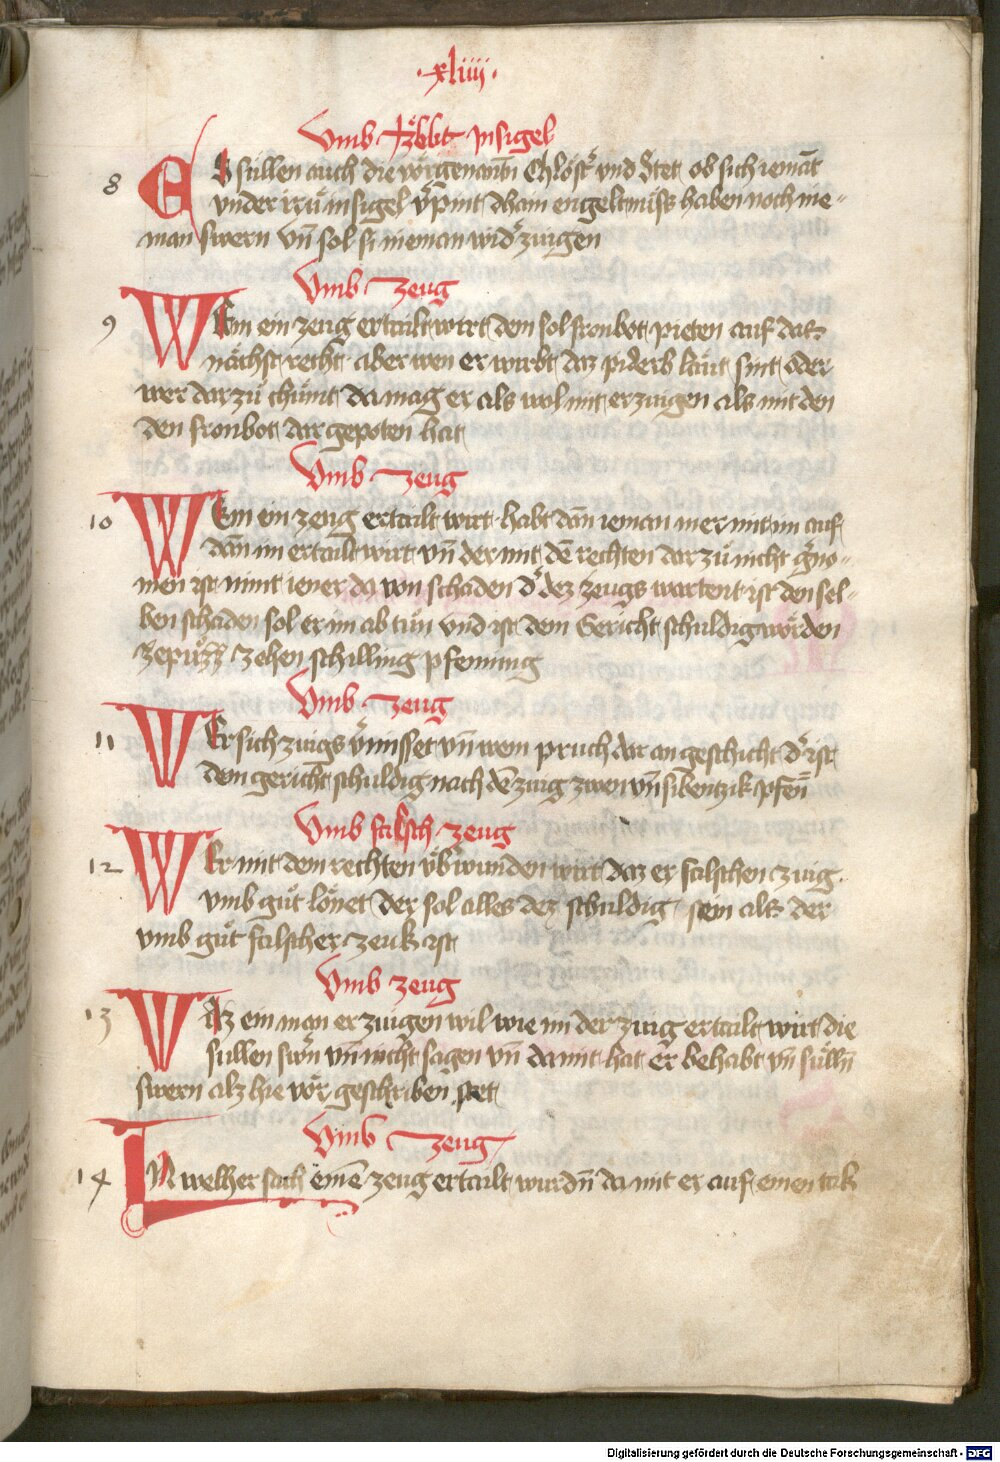 ·xliiij·
Vmb · äbbt jnsigel
8 Es süllen auch die vorgenantn Chlöst͛ vnd Stet ob sich iemāt
vnder irrū insigel v͛pint dhain engeltnüss haben noch nie-
man swern vn̄ sol si nieman wid͛zeugen
Vmb zeug
9 Wem ein zeug ertailt wirt dem sol fronbot pieten auf daz
nächst recht aber wen er wirbt daz piderb läut sint oder
wer dar zu chümt da mag er als wol mit erzeugen als mit den
den fronbot dar gepoten hat
Vmb zeug
10 Wem ein zeug ertailt wirt habt dān ieman mer mit im auf
dān im ertailt wirt vn̄ der mit dē rechten dar zu nicht g͛no-
men ist nimt iener da von schaden d͛ dez zeugs wartent ist den sel-
ben schaden sol er im ab tun vnd ist dem Gericht schuldig worden
ze puzz zehen schilling pfenning
Vmb zeug
11 Wer sich zeugs v͛misset vn̄ wem pruch dar an geschicht d͛ ist
dem gericht schuldig nach dē zeug zwen vn̄ sibentzik pfen̄
Vmb falsch zeug
12 Wer mit dem rechten üb͛wunden wirt daz er falschen zeug
vmb gut lönet der sol alles dez schuldig sein als der
vmb gut falscher zeuk ist
Vmb zeug
13 Waz ein man erzeugen wil wie im der zeug ertailt wirt die
süllen sw͛n vn̄ nicht sagen vn̄ damit hat er behabt vn̄ sülln̄
swern alz hie vor geschriben stet
Vmb zeug
14 In welher sach einē zeug ertailt wurdn̄ da mit er auf einen tak
Digitalisierung gefördert durch die Deutsche Forschungsgemeinschaft - DFG